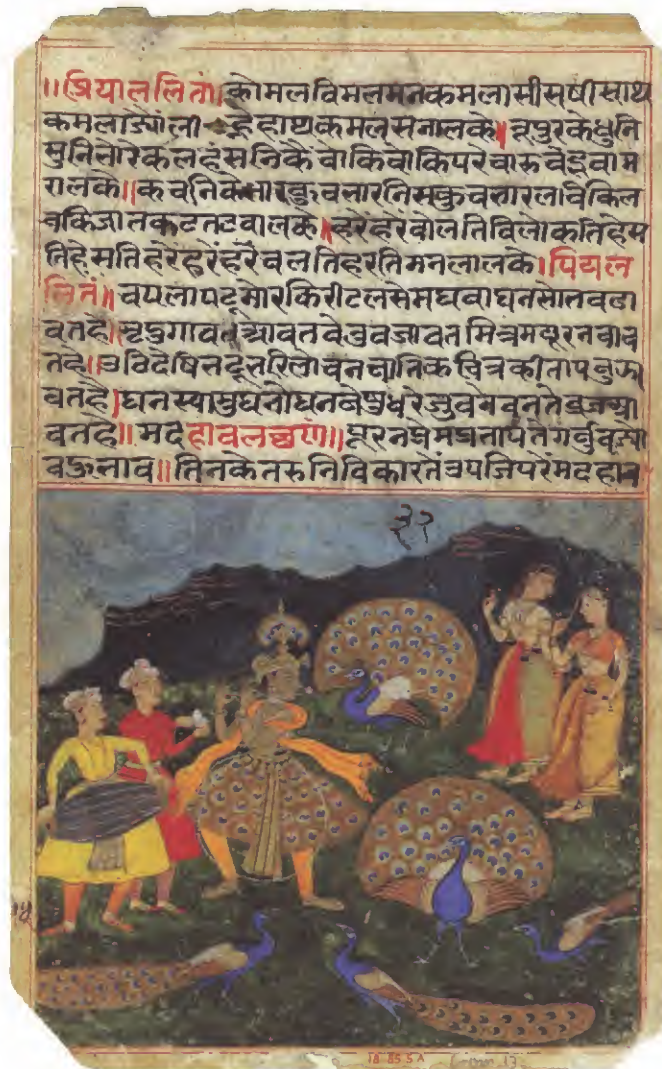 ॥प्रियाललितां॥कोमलविमलमनकमलासीसषीसाथ
कमलाज्योंली हेहाथकमलसनालके॥नूपुरकेधुनि
सुनिभोरेकलहंसनिकेंचोकिचोकिपरेचारुचेटुवाम
रालके॥कचनिके
वकिजातकटतटवालके॥हरेंहरेंवोलतिविलोकतिहेंस
तिहेंसतिहरेंहरेंहरेंचलतिहरतिमनलालके।पियल
लितं॥चपलापटमोरकिरीटलसेमघवाघनसोभवढा
वतहै॥मृदुगावतआवतवेनुवजावतमित्रमयूरनचाव
तहै॥उठिदेषिभटूभरिलोचनचातिकचित्रकीतापवुझा
वतहै॥घनस्यामघनोघनवेषधरेजुवनेवनतेव्रजआ
वतहै॥मदहावलछण॥पूरनप्रेमप्रतापतेगर्वुवढ्यो
वहुभाव॥तिनकेतरुनिविकारतेंउपजिपरेंमदहाव
३२
18 85 5 A